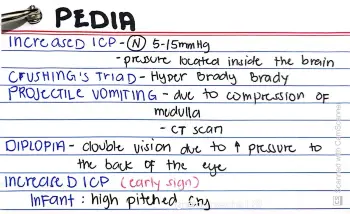 PEDIA
INCREASED ICP - (N) 5-15mmHg
- pressure located inside the brain
CRUSHING'S TRIAD - Hyper Brady Brady
PROJECTILE VOMITING - due to compression of
medulla
- CT scan
DIPLOPIA - double vision due to ↑ pressure to
the back of the eye
INCREASED ICP (early sign)
INFANT : high pitched cry
Scanned with CamScanner